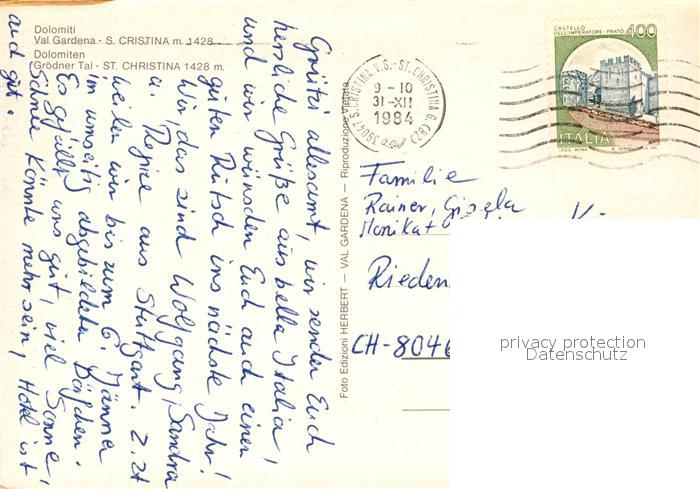 Dolomiti
Val Gardena - S. CRISTINA m. 1428
Dolomiten
Grödner Tal - ST. CHRISTINA 1428 m.
Grützi allesamt, wir senden Euch
herzliche Grüße aus bella Italia,
und wir wünschen Euch auch einen
guten Rutsch ins nächste Jahr!
Wir, das sind Wolfgang, Sandra
u. aus Stuttgart. Z. Zt
weilen wir bis zum 6. Jänner
im umseitig abgebildeten
Es gefällt uns gut, viel Sonne,
Schnee könnte mehr sein, Hotel ist
auch gut.
Foto Edizioni HERBERT — VAL GARDENA — Riproduzione Vietata
39047 S. CRISTINA V.G. - ST. CHRISTINA G. (BZ)
9 - 10
31-XII
1984
CASTELLO
DELL'IMPERATORE - PRATO
400
ITALIA
Familie
Rainer, Gisela
Monika +
Rieden
CH-8046
privacy protection
Datenschutz